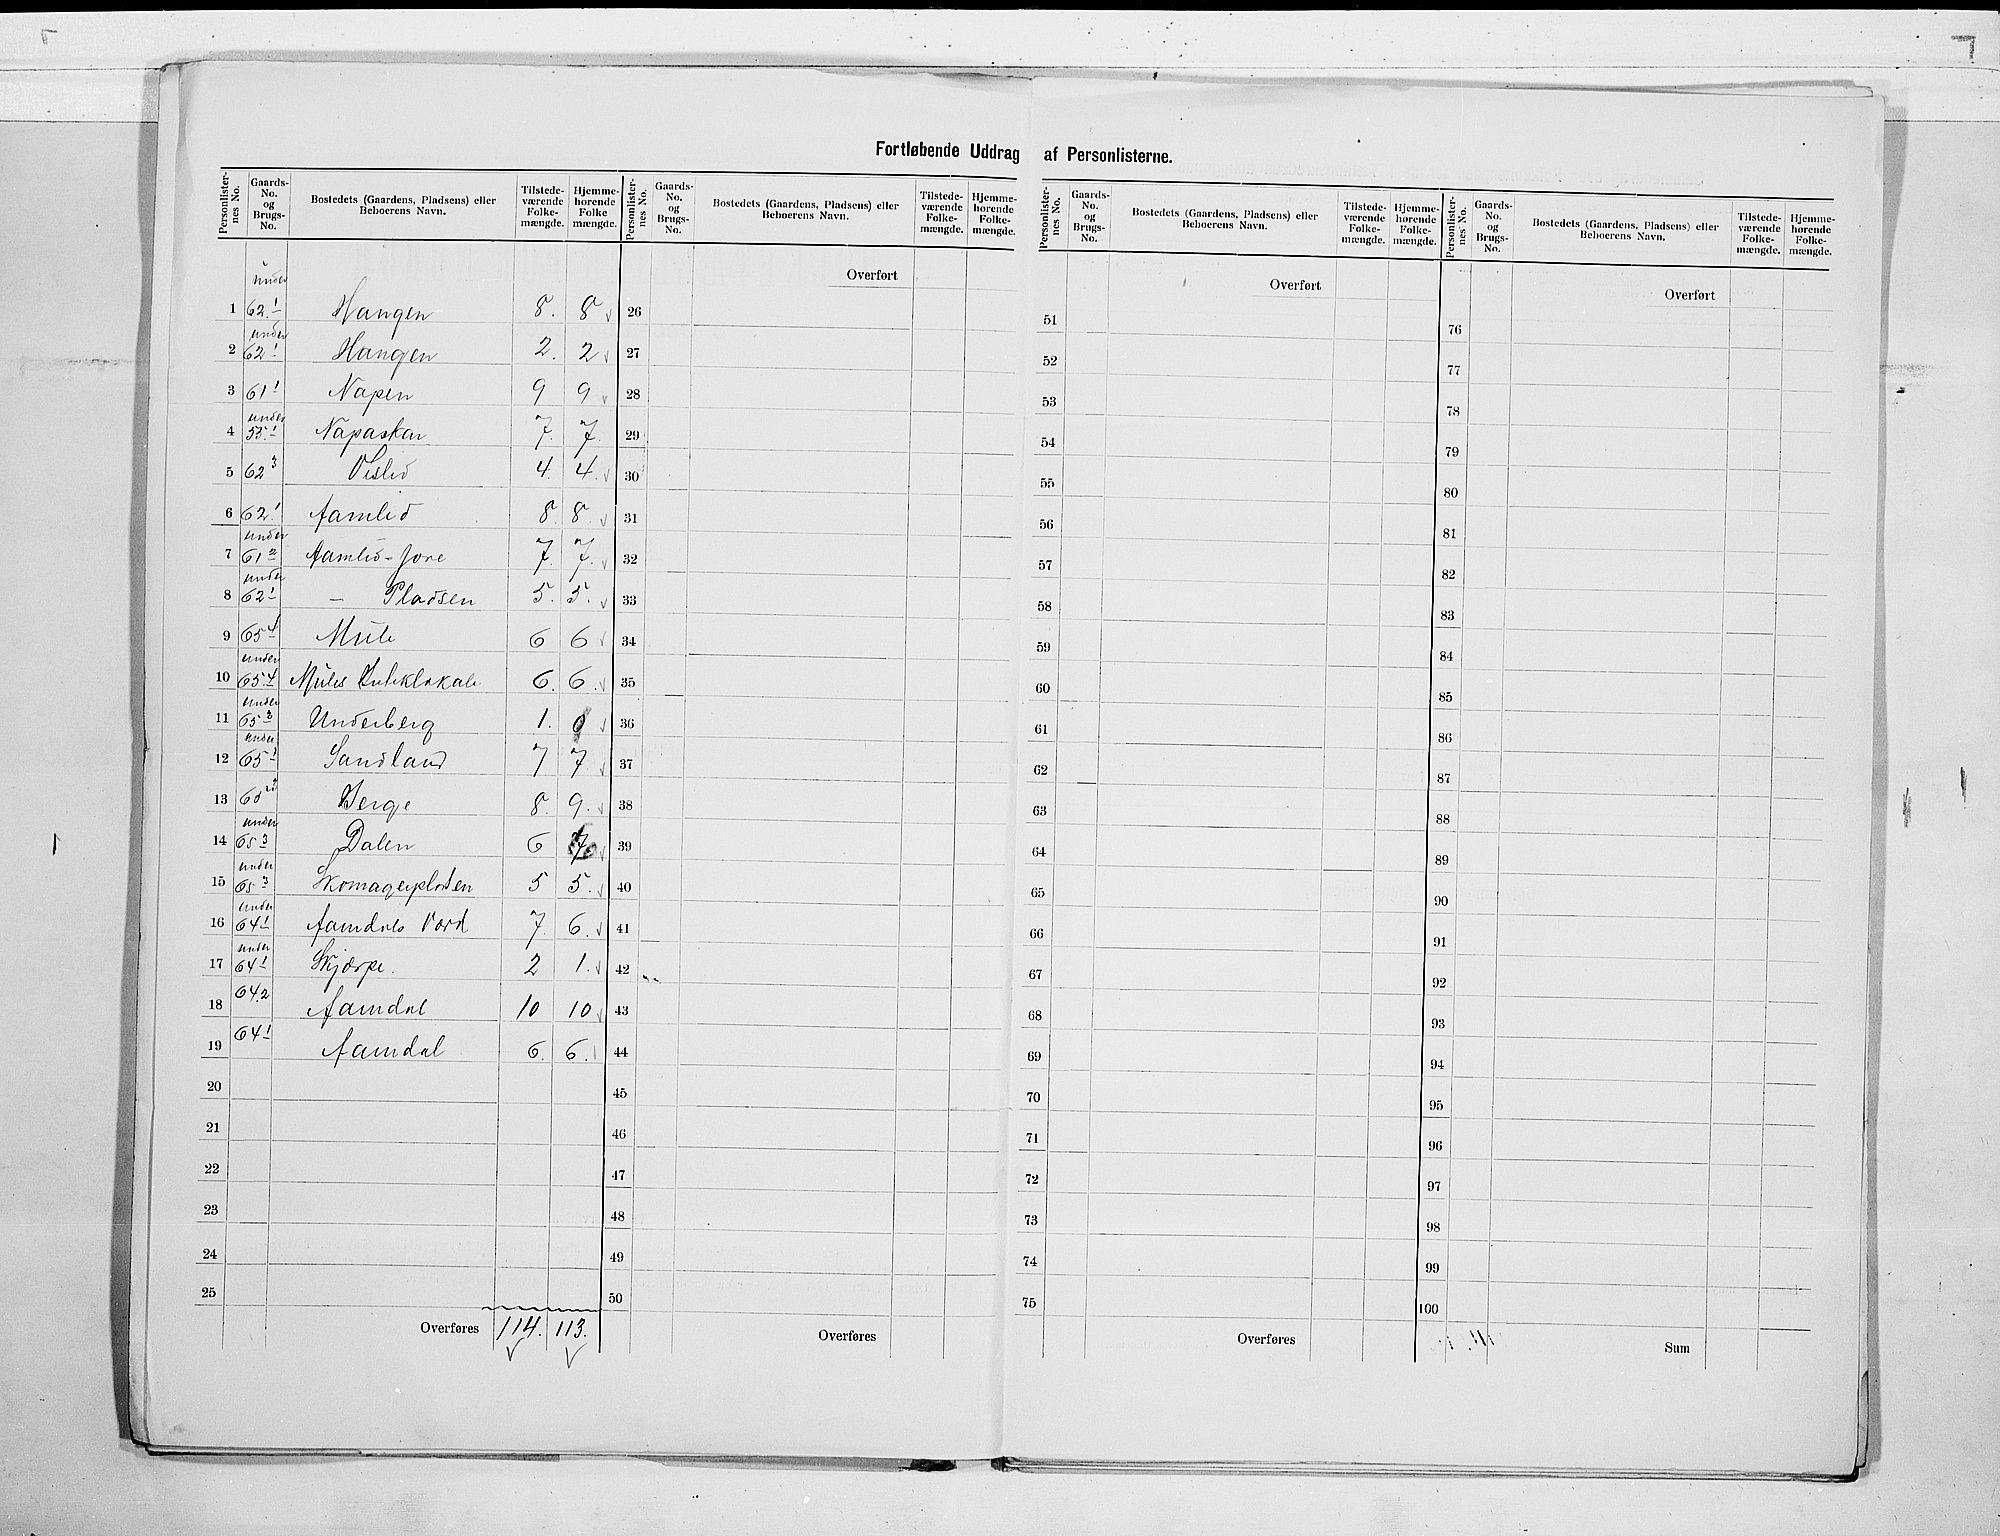 Fortløbende Uddrag af Personlisterne.
Personlister-nes No. Gaards-No. og Brugs-No. Bostedets (Gaardens, Pladsens) eller Beboerens Navn. Tilstede-værende Folke-mængde. Hjemme-hørende Folke mængde.
under
1 62.1 Haugen 8. 8
under
2 62.1 Haugen 2. 2
3 61 1 Napen 9 9
under
4 55.1 Napaskar 7. 7.
5 62 3 Vislid 4. 4.
6 62.1 Aamlid 8. 8.
under
7 61 2 Aamlid-Jore 7. 7.
under
8 62 1 — Pladsen 5. 5.
9 65 4 Mule 6 6
under
10 65 4 6. 6.
under
11 65 3 Underberg 1. 0
under
12 65 1 Sandland 7 7
13 Berge 8. 9.
under
14 65 3 Dalen 6
under
15 65 3 Skomagerpladsen 5 5.
under
16 64 1 Aamdals 7. 6.
under
17 64 1 Skjærpe. 2 1.
18 64.2 Aamdal 10 10
19 64 1 Aamdal 6. 6.
20
21
22
23
24
25
Overføres 114. 113.
Personlister-nes No. Gaards-No. og Brugs-No. Bostedets (Gaardens, Pladsens) eller Beboerens Navn. Tilstede-værende Folke-mængde. Hjemme-hørende Folke-mængde.
Overført
26
27
28
29
30
31
32
33
34
35
36
37
38
39
40
41
42
43
44
45
46
47
48
49
50
Overføres
Personlister-nes No. Gaards-No. og Brugs-No. Bostedets (Gaardens, Pladsens) eller Beboerens Navn. Tilstede-værende Folke-mængde. Hjemme-hørende Folke-mængde.
Overført
51
52
53
54
55
56
57
58
59
60
61
62
63
64
65
66
67
68
69
70
71
72
73
74
75
Overføres
Personlister-nes No. Gaards-No. og Brugs-No. Bostedets (Gaardens, Pladsens) eller Beboerens Navn. Tilstede-værende Folke-mængde. Hjemme-hørende Folke-mængde.
Overført
76
77
78
79
80
81
82
83
84
85
86
87
88
89
90
91
92
93
94
95
96
97
98
99
100
Sum